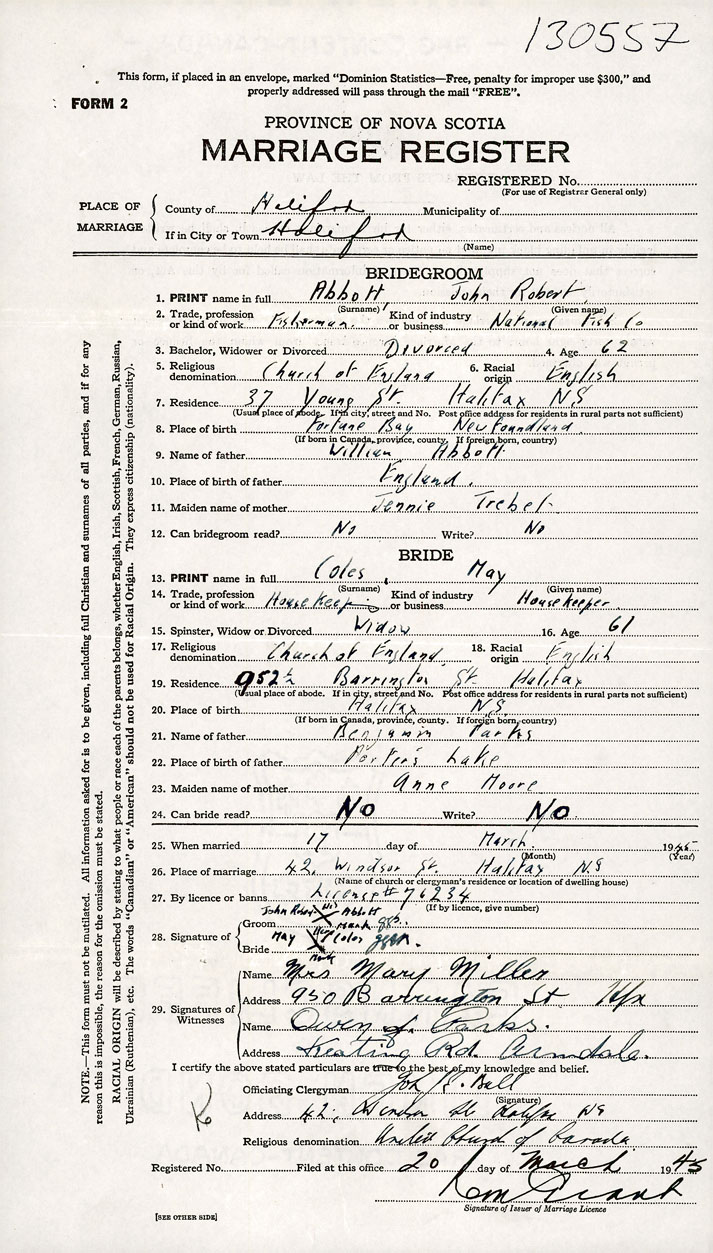 130557
This form, if placed in an envelope, marked "Dominion Statistics—Free, penalty for improper use $300," and
properly addressed will pass through the mail "FREE".
FORM 2
PROVINCE OF NOVA SCOTIA
MARRIAGE REGISTER
REGISTERED No.
(For use of Registrar General only)
PLACE OF MARRIAGE
County of Halifax Municipality of
If in City or Town Halifax
(Name)
BRIDEGROOM
1. PRINT name in full Abbott, John Robert
(Surname) (Given name)
2. Trade, profession or kind of work Fisherman. Kind of industry or business National Fish Co
3. Bachelor, Widower or Divorced Divorced 4. Age 62
5. Religious denomination Church of England 6. Racial origin English
7. Residence 37 Young St. Halifax NS
(Usual place of abode. If in city, street and No. Post office address for residents in rural parts not sufficient)
8. Place of birth Fortune Bay Newfoundland
(If born in Canada, province, county. If foreign born, country)
9. Name of father William Abbott
10. Place of birth of father England.
11. Maiden name of mother Jennie Trebel
12. Can bridegroom read? No Write? No
BRIDE
13. PRINT name in full Coles, May
(Surname) (Given name)
14. Trade, profession or kind of work House Keeping Kind of industry or business Housekeeper
15. Spinster, Widow or Divorced Widow 16. Age 61
17. Religious denomination Church of England 18. Racial origin English
19. Residence 952½ Barrington St. Halifax
(Usual place of abode. If in city, street and No. Post office address for residents in rural parts not sufficient)
20. Place of birth Halifax NS
(If born in Canada, province, county. If foreign born, country)
21. Name of father Benjamin Parks
22. Place of birth of father Porter's Lake
23. Maiden name of mother Anne Moore
24. Can bride read? No Write? No
25. When married 17 day of March 1945
(Month) (Year)
26. Place of marriage 42, Windsor St. Halifax NS
(Name of church or clergyman's residence or location of dwelling house)
27. By licence or banns License # 76234
(If by licence, give number)
28. Signature of
Groom John Robert his X mark Abbott
Bride May her X mark Coles
29. Signatures of Witnesses
Name Mrs Mary Miller
Address 950 Barrington St Hfx
Name Owen J. Parks.
Address Keating Rd. Armdale.
I certify the above stated particulars are true to the best of my knowledge and belief.
Officiating Clergyman Ball
(Signature)
Address 42, Windsor St. Halifax NS
Religious denomination United Church of Canada
Registered No. Filed at this office 20 day of March 1945
Grant
Signature of Issuer of Marriage Licence
[SEE OTHER SIDE]
NOTE.—This form must not be mutilated. All information asked for is to be given, including full Christian and surnames of all parties, and if for any
reason this is impossible, the reason for the omission must be stated.
RACIAL ORIGIN will be described by stating to what people or race each of the parents belongs, whether English, Irish, Scottish, French, German, Russian,
Ukrainian (Ruthenian), etc. The words "Canadian" or "American" should not be used for Racial Origin. They express citizenship (nationality).